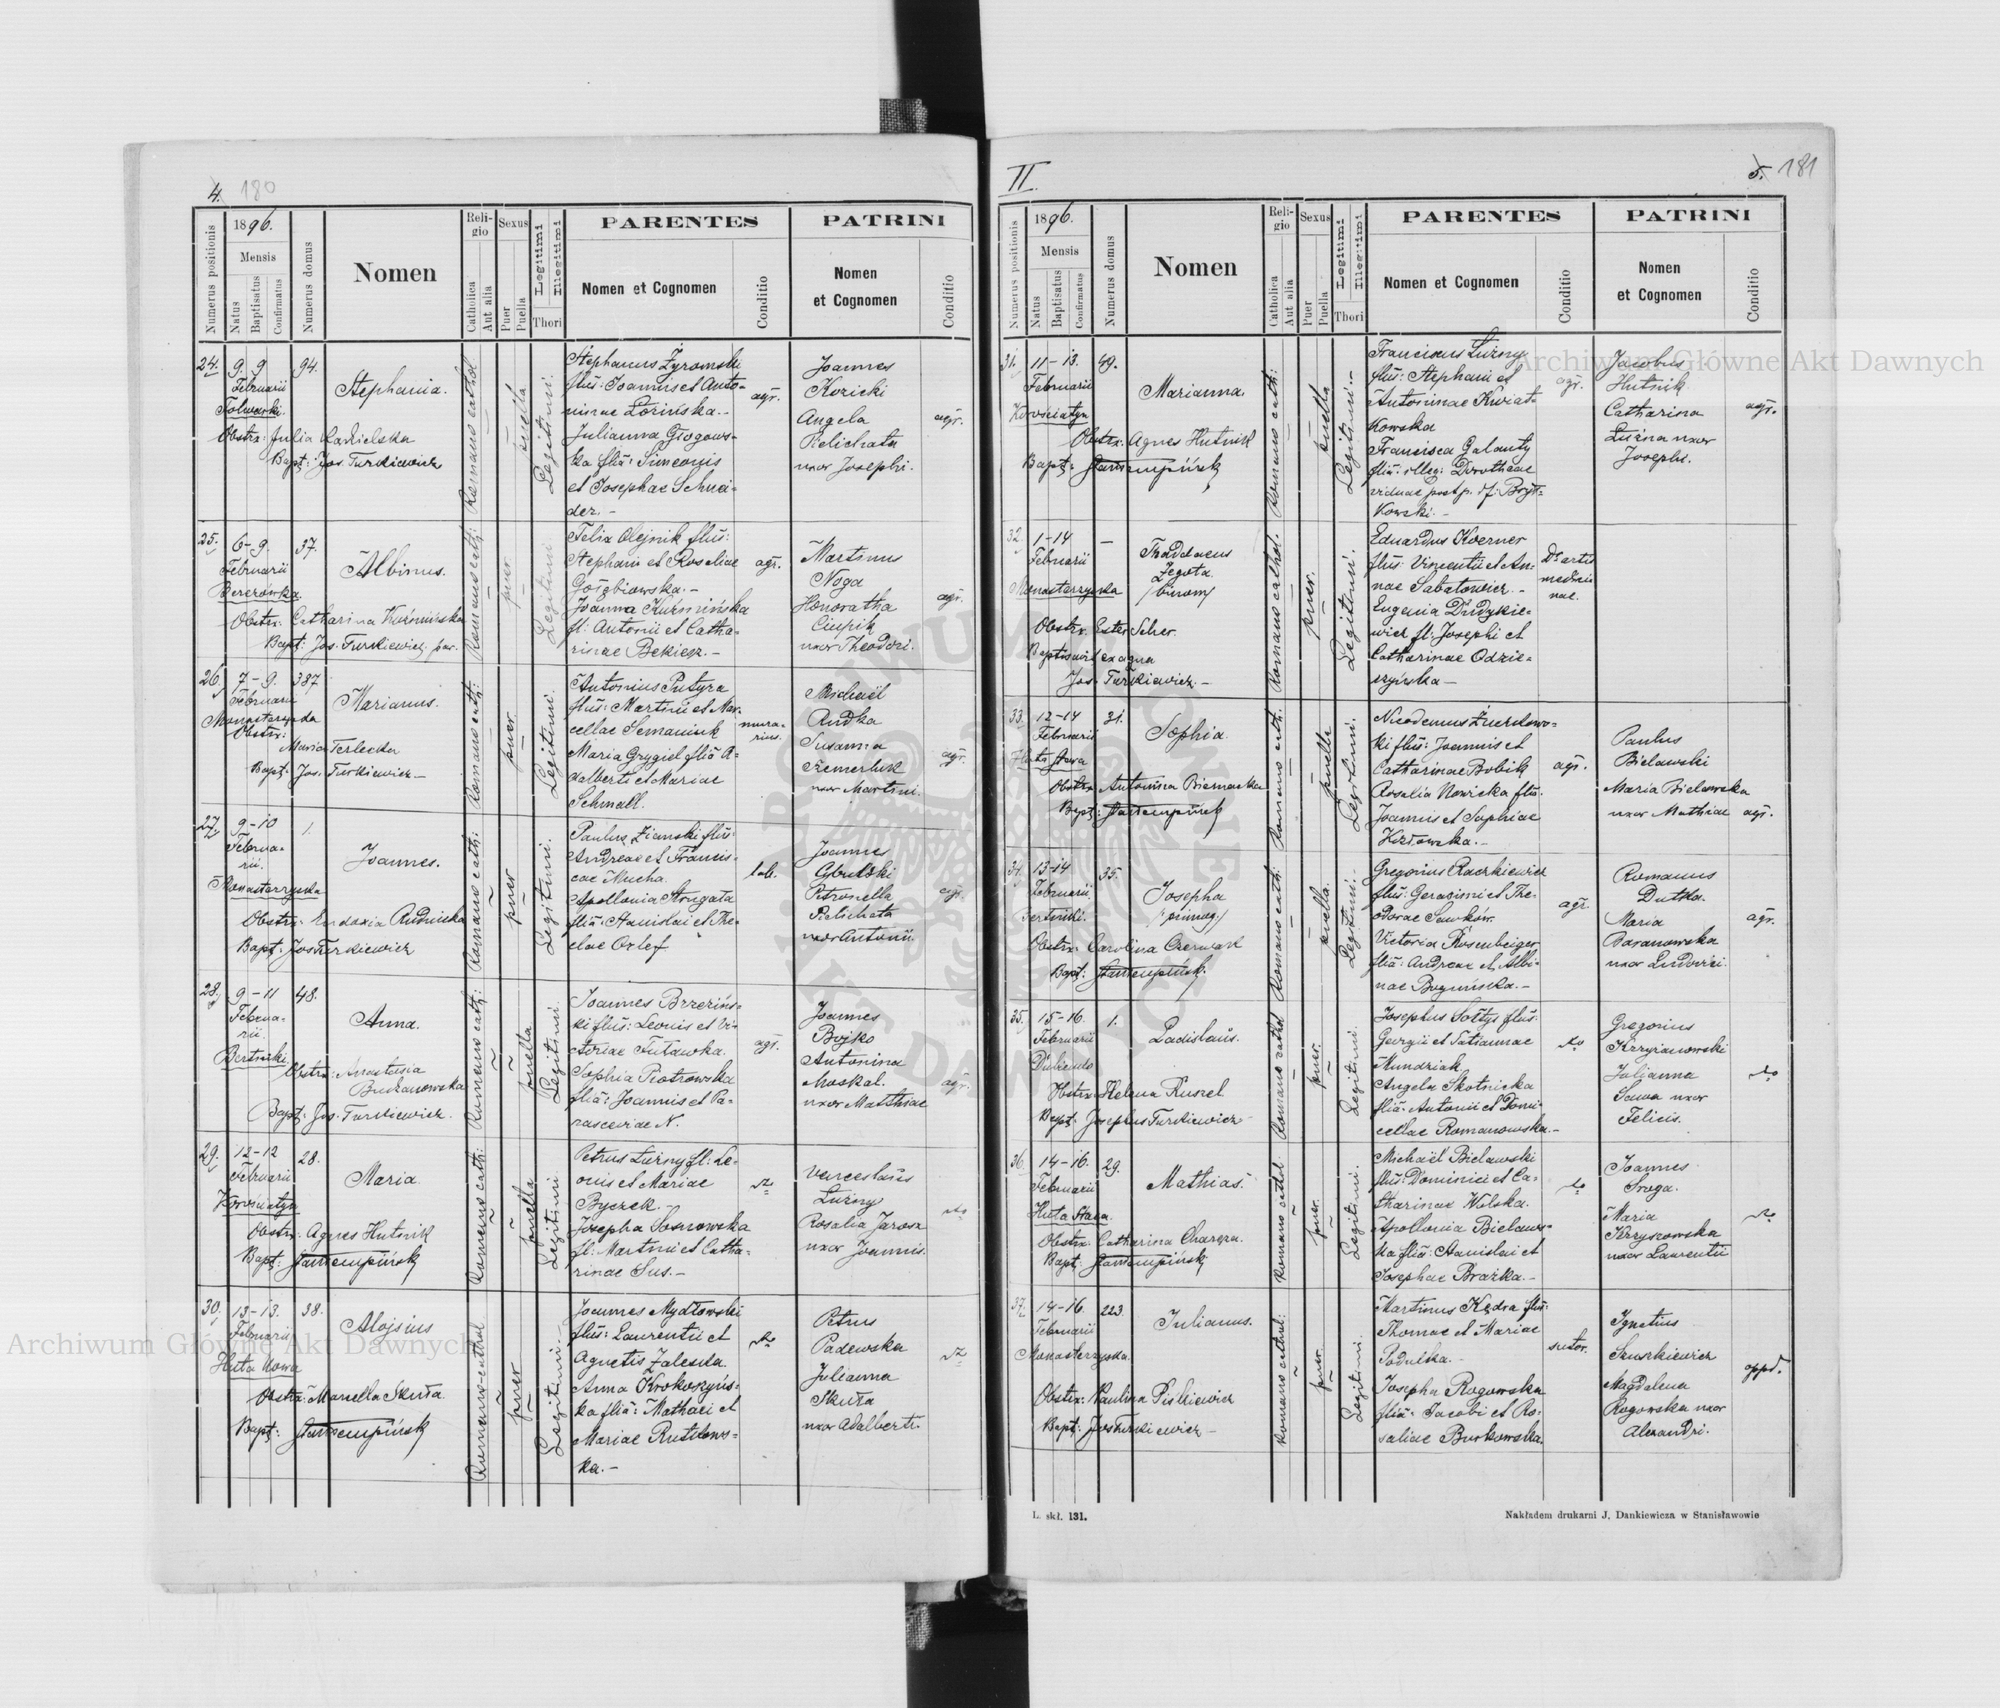 4. 180
Numerus positionis
1896.
Mensis
Natus
Baptisatus
Confirmatus
Numerus domus
Nomen
Religio
Catholica
Aut alia
Sexus
Puer
Puella
Legitimi
Illegitimi
Thori
PARENTES
Nomen et Cognomen
Conditio
PATRINI
Nomen
et Cognomen
Conditio
24. 9. 9 94.
Februarii
Folwarki.
Stephania.
Obstx: Julia
Bapt: Jos. Turkiewicz
Romano cathol
puella
Legitimi.
Stephanus Żyromski
flius: Joannis et Anto-
ninae
Julianna Głogows-
ka flia: Simeonis
et Josephae Schnei-
der. -
agr.
Joannes
Kozicki
Angela
Pelichata
uxor Josephi.
agr.
25. 6-9. 37.
Februarii
Berezówka
Albinus.
Obstx. Catharina Koźmińska
Bapt: Jos. Turkiewicz par.
Romano cath:
puer
Legitimi
Felix Olejnik flius:
Stephani et Rosaliae
Gołębiowska. -
Joanna Kuźmińska
fl: Antonii et Catha-
rinae Bekiesz. -
agr.
Martinus
Noga
Honoratha
Ciupik
uxor Theodori.
agr.
26. 7-9. 387
Februarii
Monasterzyska
Obstx:
Marianus.
Maria Terlecka
Bapt. Jos. Turkiewicz -
Romano cath:
puer
Legitimi.
Antonius Putyra
flius: Martini et Mar-
cellae Semaniuk
Maria Grygiel flia A-
dalberti et Mariae
Schmall.
mura-
rius.
Michaël
Rudka
Susanna
Szemerluk
uxor Martini.
agr.
27. 9-10 1.
Februa-
rii.
Monasterzyska
Joannes.
Obstx. Eudoxia Rudnicka
Bapt: Jos Turkiewicz
Romano cath:
puer
Legitimi.
Paulus Zianski flius:
Andreae et Francis-
cae Mucha.
Apollonia Strugata
flia: Stanislai et The-
clae Orlef
lab.
Joannes
Gbulski
Petronella
Pielichata
uxor Antonii.
agr.
28. 9-11 48.
Februa-
rii.
Bertniki.
Anna.
Obstx: Anastasia
Bukanowska
Bapt: Jos. Turkiewicz.
Romano cath:
puella
Legitimi.
Joannes Brzezińs-
ki flius: Leonis et Vi-
ctoriae Futawka.
Sophia Piotrowska
flia: Joannis et Pa-
rasceviae N.
agr.
Joannes
Bojko
Antonina
Moskal.
uxor Matthiae
agr.
29. 12-12 28.
Februarii
Korościatyn
Maria.
Obstx: Agnes Hutnik
Bapt:
Romano cath:
puella
Legitimi
Petrus Luźny fl: Le-
onis et Mariae
Byczek. -
Josepha Sosnowska
fl: Martini et Catha-
rinae Sus. -
dto
Venceslaus
Luźny
Rosalia Jarosz
uxor Joannis.
dto
30. 13-13. 38.
Februarii
Huta Nowa
Aloisius
Obstx: Marcella Skuła.
Bapt:
Romano cathol
puer
Legitimi
Joannes Mydłowski
flius: Laurentii et
Agnetis Zaleska.
Anna Krokoszyńs-
ka flia: Mathaei et
Mariae Rutkows-
ka. -
dto
Petrus
Padewska
Julianna
Skuła
uxor Adalberti.
dto
II.
5. 181
Numerus positionis
1896.
Mensis
Natus
Baptisatus
Confirmatus
Numerus domus
Nomen
Religio
Catholica
Aut alia
Sexus
Puer
Puella
Legitimi
Illegitimi
Thori
PARENTES
Nomen et Cognomen
Conditio
PATRINI
Nomen
et Cognomen
Conditio
31. 11-13. 49.
Februarii
Korościatyn
Marianna.
Obstx. Agnes Hutnik
Bapt:
Romano cath:
puella
Legitimi.
Franciscus Luźny
flius: Stephani et
Antoninae Kwiat-
kowska
Francisca Galanty
flia: illeg: Dorotheae
viduae post p. df: Bryt-
kowski. -
agr.
Jacobus
Hutnik
Catharina
Luźna uxor
Josephi.
agr.
32. 1-14 -
Februarii
Monasterzyska
Thaddaeus
Żegota
/binom/
Obstx. Ester Scher.
Baptisavit ex aqua
Jos. Turkiewicz. -
Romano cathol.
puer.
Legitimi.
Eduardus Koerner
flius: Vincentii et An-
nae Sabatowicz. -
Eugenia Dudykie-
wicz fl: Josephi et
Catharinae Odzie-
rzyńska -
Dr artis
medici-
nae.
33. 12-14 31.
Februarii
Huta Stara
Sophia
Obstx. Antonina Biernacka
Bapt:
Romano cath.
puella
Legitimi.
Nicodemus Żurkows-
ki flius: Joannis et
Catharinae Bobik
Rosalia Nowicka flia.
Joannis et Sophiae
Kozłowska. -
agr.
Paulus
Bielawski
Maria Bielawska
uxor Mathiae
agr.
34. 13-14 35.
Februarii
Bertniki.
Josepha
/primog./
Obstx. Carolina Czerwak
Bapt:
Romano cath:
puella.
Legitimi.
Gregorius Raczkiewicz
flius: Gerasimi et The-
odorae Sawków.
Victoria Rosenbeiger
flia: Andreae et Albi-
nae Bugnińska. -
agr.
Romanus
Dutka.
Maria
Baranowska
uxor Ludovici.
agr.
35. 15-16. 1.
Februarii
Dubienko
Ladislaus.
Obstx. Helena Kuszel
Bapt: Josephus Turkiewicz
Romano cathol
puer.
Legitimi.
Josephus Sołtys flius:
Georgii et Tatiannae
Mundziak
Angela Skotnicka
flia. Antonii et Domi-
cellae Romanowska. -
dto
Gregorius
Krzyżanowski
Julianna
Sowa uxor
Felicis.
dto
36. 14-16. 29.
Februarii
Huta Stara
Mathias.
Obstx: Catharina Charęza.
Bapt:
Romano cathol.
puer.
Legitimi.
Michaël Bielawski
flius: Dominici et Ca-
tharinae Wolska.
Apollonia Bielaws-
ka flia: Stanislai et
Josephae Brazka. -
dto
Joannes
Sroga.
Maria
Krzyszowska
uxor Laurentii
dto
37. 14-16. 223
Februarii
Monasterzyska.
Julianus.
Obstx: Paulina Piśkiewicz
Bapt: Jos Turkiewicz -
Romano cathol.
puer.
Legitimi.
Martinus Kędra flius:
Thomae et Mariae
Podulka. -
Josepha Rogowska
flia. Jacobi et Ro-
saliae Burkowska.
sutor.
Ignatius
Szuszkiewicz
Magdalena
Rogowska uxor
Alexandri.
oppd.
L. skł. 131.
Nakładem drukarni J. Dankiewicza w Stanisławowie
Archiwum Główne Akt Dawnych
Archiwum Główne Akt Dawnych
ARCHIWUM GŁÓWNE AKT DAWNYCH